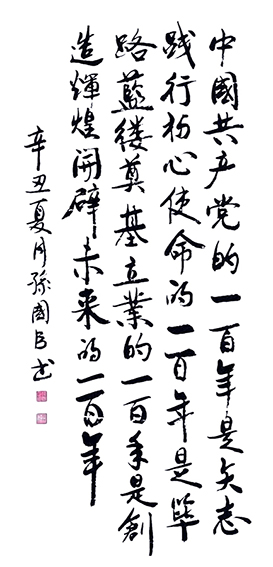 中國共产党的一百年是矢志
践行初心使命的一百年是筚
路藍缕奠基立業的一百年是創
造輝煌開辟未来的一百年
辛丑夏月孫國书